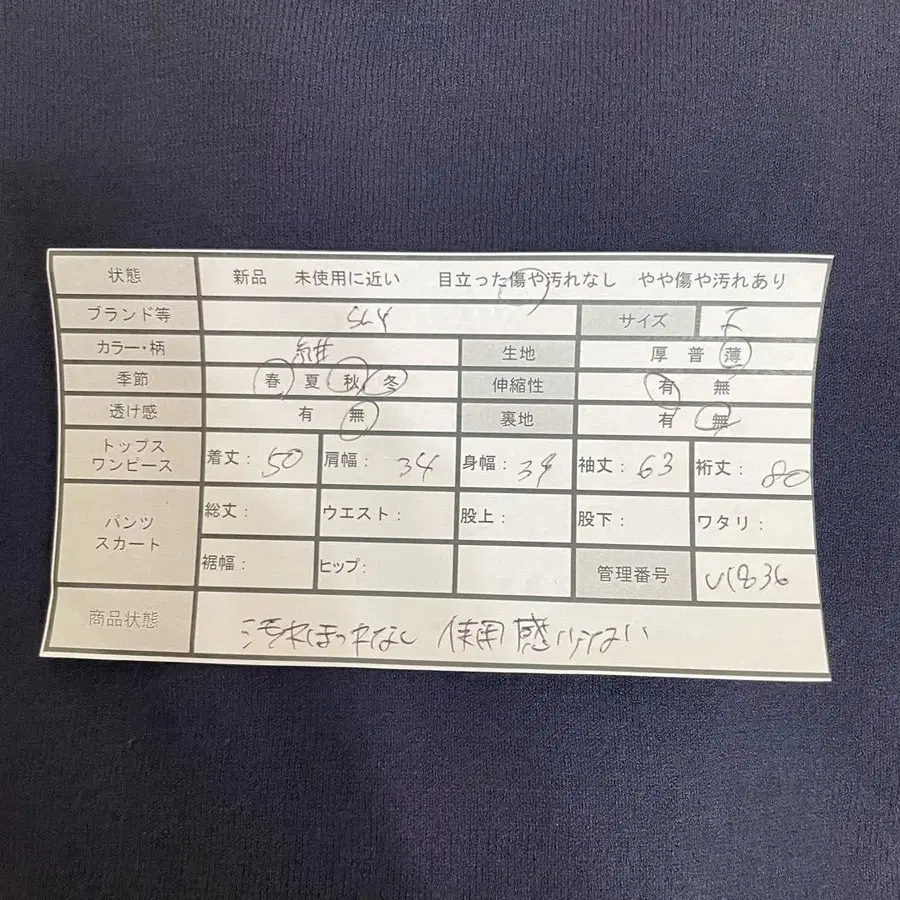 状態 新品 未使用に近い 目立った傷や汚れなし やや傷や汚れあり
ブランド等 SLY サイズ F
カラー・柄 紺 生地 厚 普 薄
季節 春 夏 秋 冬 伸縮性 有 無
透け感 有 無 裏地 有 無
トップス
ワンピース
着丈: 50 肩幅: 34 身幅: 34 袖丈: 63 裄丈: 80
パンツ
スカート
総丈: ウエスト: 股上: 股下: ワタリ:
裾幅: ヒップ: 管理番号 836
商品状態 汚れほつれなし 使用感少ない